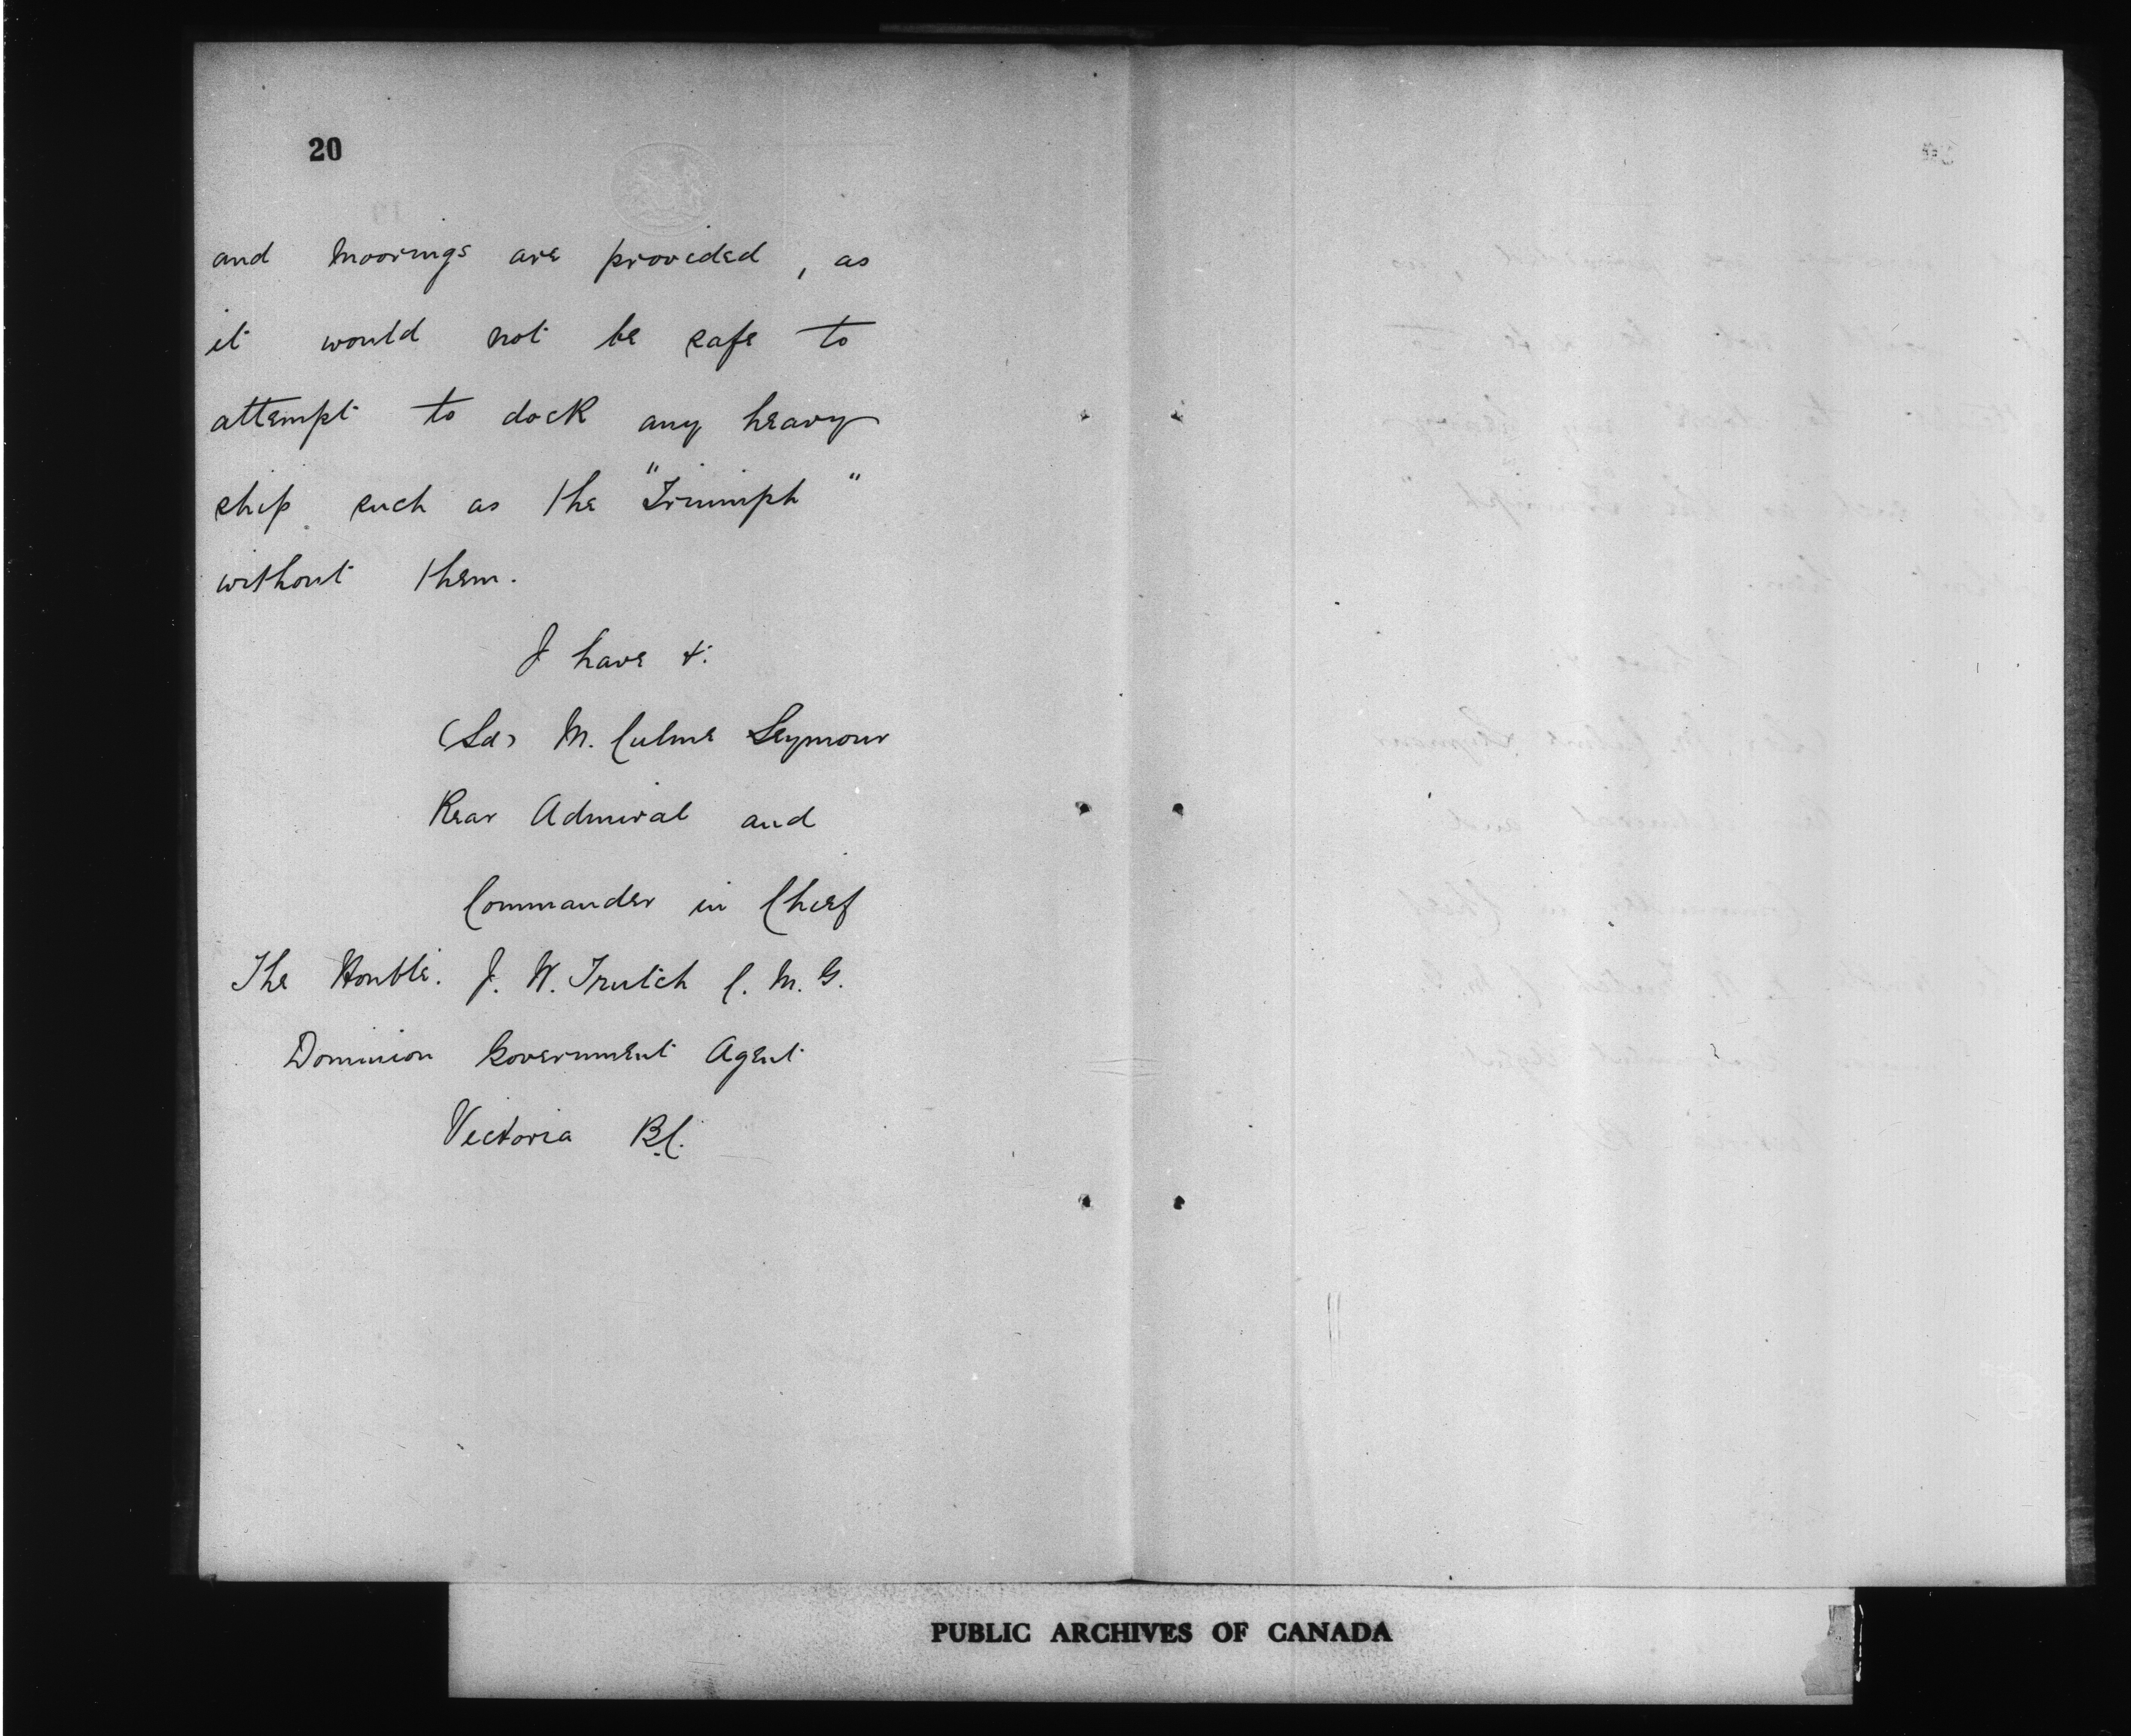 20
and moorings are provided, as
it would not be safe to
attempt to dock any heavy
ship such as the "Triumph"
without them.
I have &.
(Sd) M. Culme Seymour
Rear Admiral and
Commander in Chief
The Honble. J. W. Trutch C. M. G.
Dominion Government Agent
Victoria B.C.
PUBLIC ARCHIVES OF CANADA